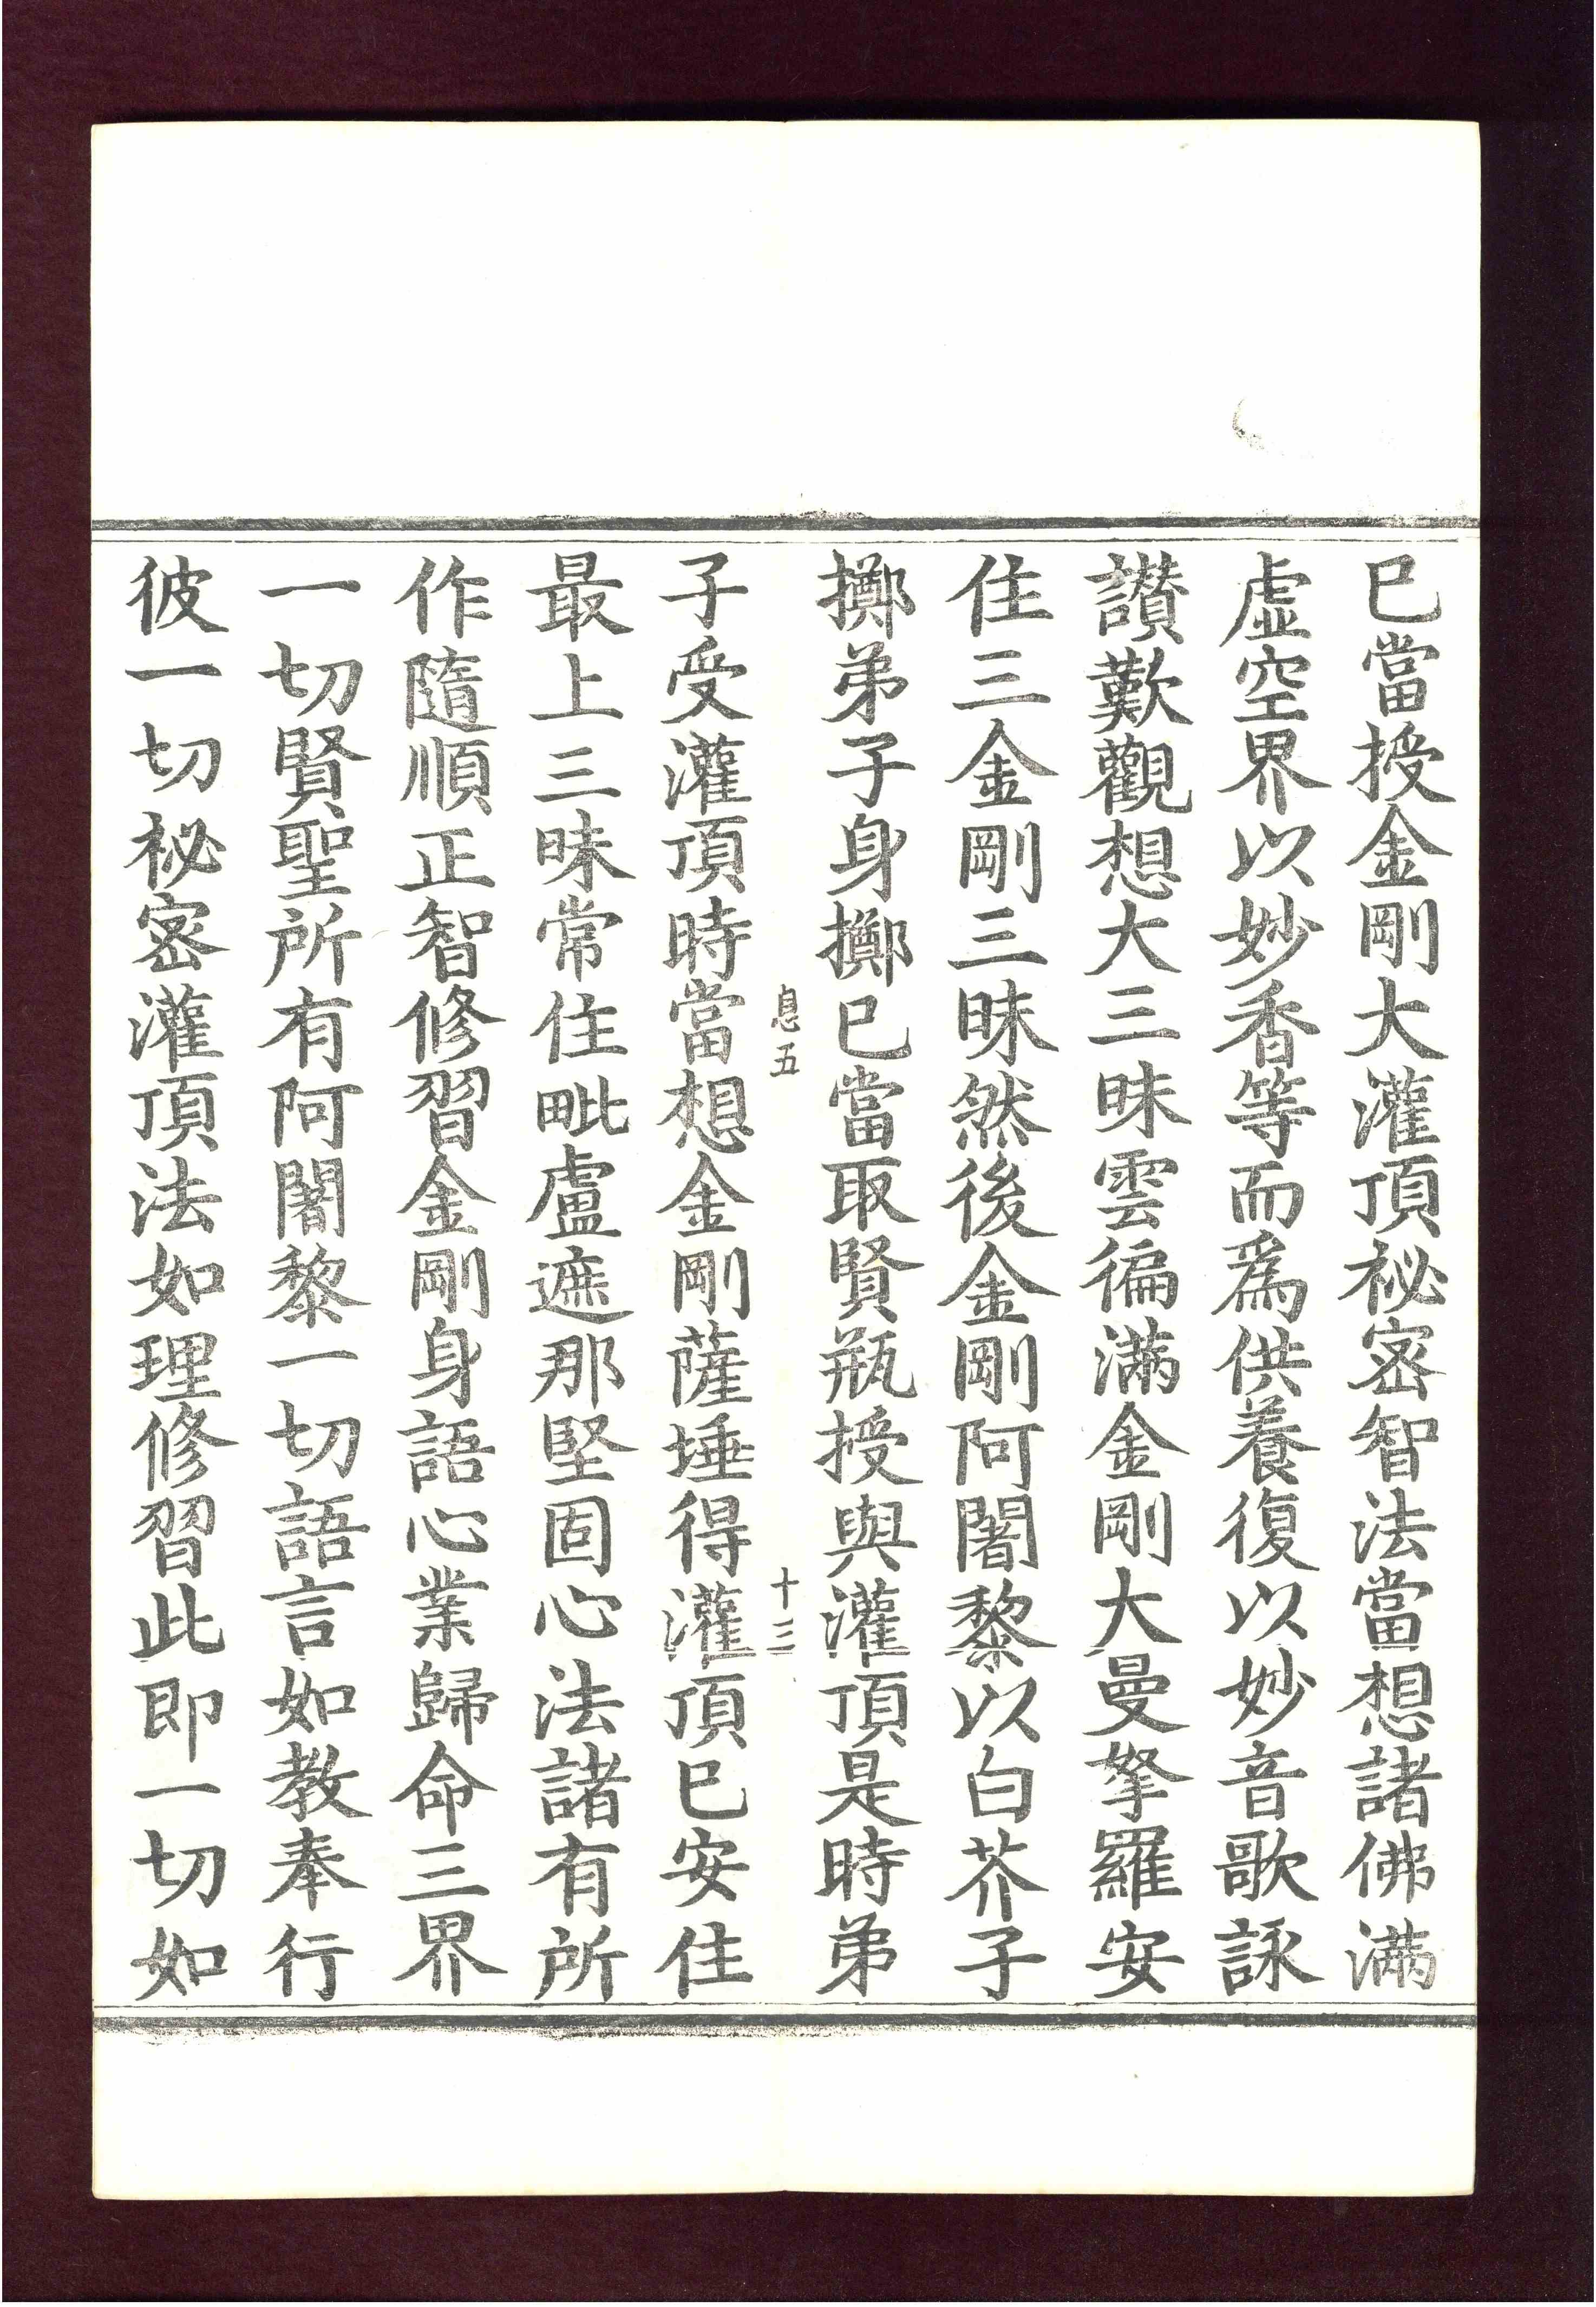 已當授金剛大灌頂祕密智法當想諸佛滿
虛空界以妙香等而爲供養復以妙音歌詠
讃歎觀想大三昧雲徧滿金剛大曼拏羅安
住三金剛三昧然後金剛阿闍黎以白芥子
擲弟子身擲已當取賢瓶授與灌頂是時弟
息五
十三
子受灌頂時當想金剛薩埵得灌頂已安住
最上三昧常住毗盧遮那堅固心法諸有所
作隨順正智修習金剛身語心業歸命三界
一切賢聖所有阿闍黎一切語言如教奉行
彼一切祕密灌頂法如理修習此即一切如